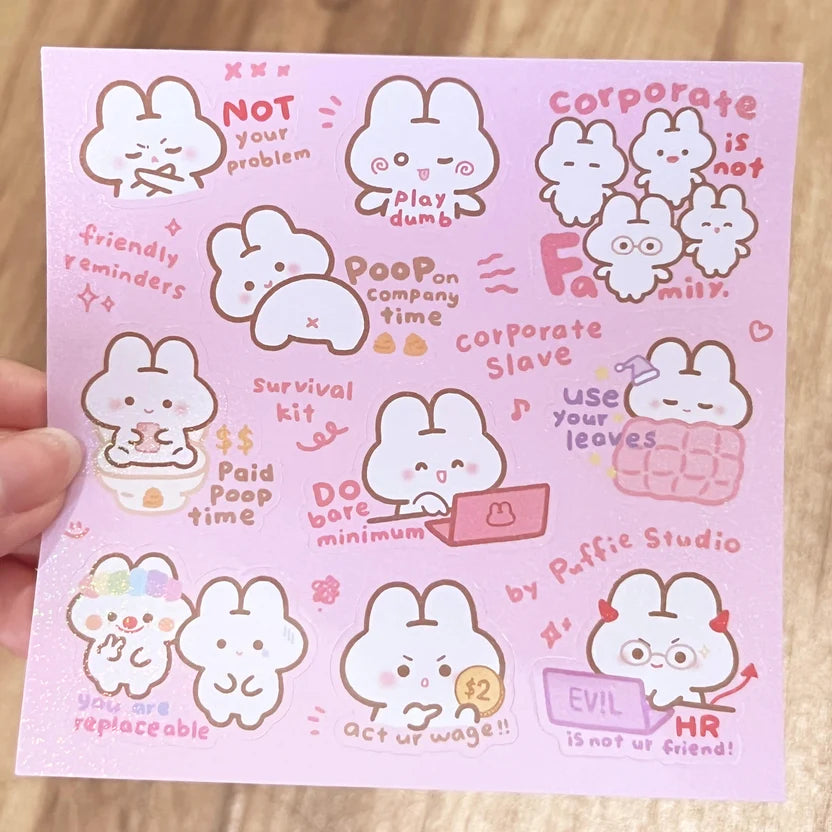 NOT
your
problem
play
dumb
corporate
is
not
Fa
mily.
friendly
reminders
POOP on
company
time
corporate
slave
survival
kit
use
your
leaves
$$
Paid
Poop
time
DO
bare
minimum
by Puffie Studio
you are
replaceable
$2
act ur wage!!
EVIL
HR
is not ur friend!